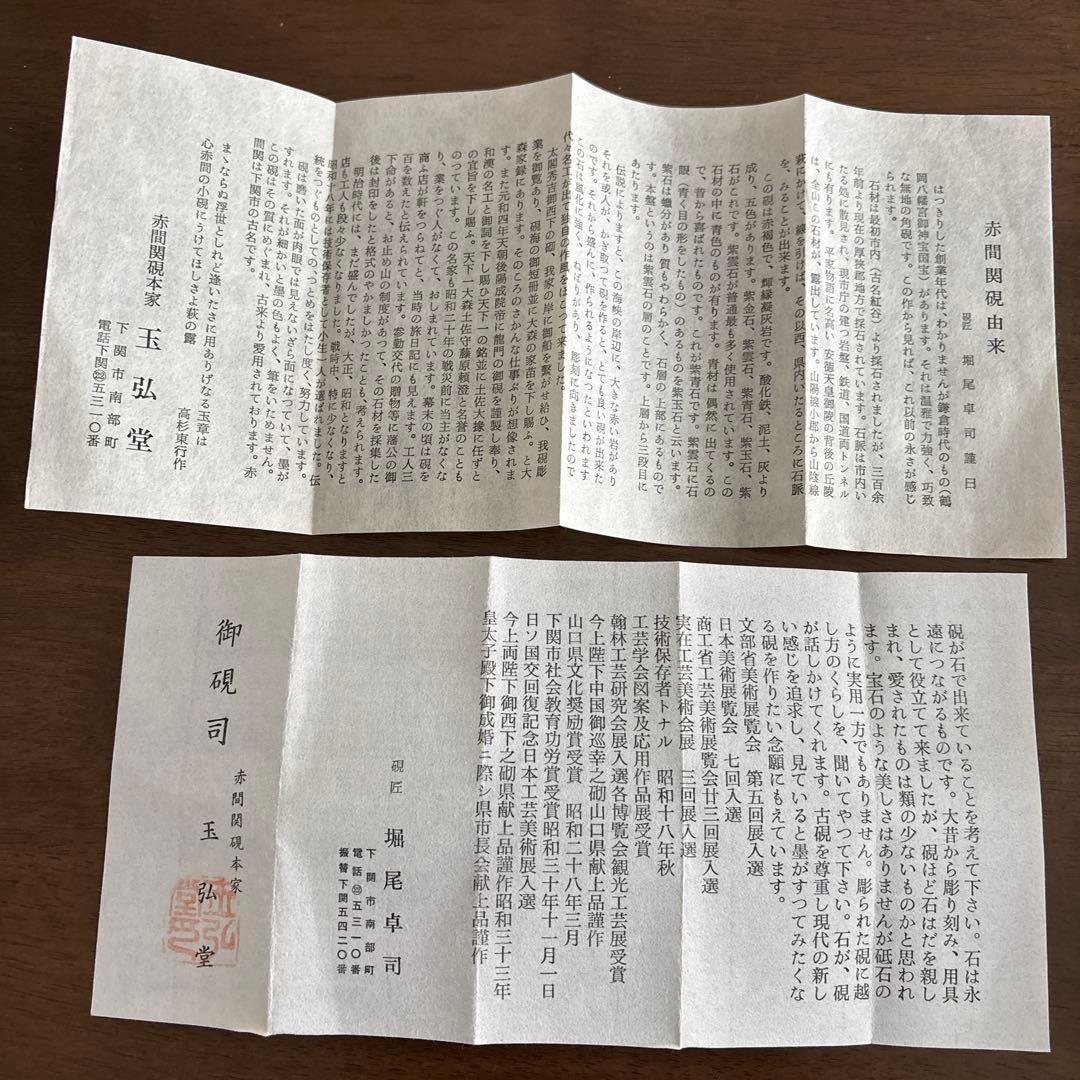 赤間関硯由来
硯匠 堀尾卓司謹日
はっきりした創業年代は、わかりませんが鎌倉時代のもの(鶴
岡八幡宮御神宝国宝)があります。それは温雅で力強く、巧致
な無地の角硯です。この作から見れば、これ以前の永さが感じ
られます。
石材は最初市内(古名紅谷)より採石されましたが、三百余
年前より現在の厚狭郡地方で採石されています。石脈は市内い
たる処に散見され、現市庁の建つ岩盤、鉄道、国道両トンネル
にも有ります。平家物語に名高い、安徳天皇御陵の背後の丘陵
は、全山この石材が、露出しています。山陽線小郡から山陰線
萩にかけて、線を引けば、その以西、県内いたるところに石脈
を、みることが出来ます。
この硯は赤褐色で、輝緑凝灰岩です。酸化鉄、泥土、灰より
成り、五色があります。紫金石、紫雲石、紫青石、紫玉石、紫
石がこれです。紫雲石が普通最も多く使用されています。この
石材の中に青色のものが有ります。青材は偶然に出てくるの
で、昔から喜ばれたものです。これが紫青石です。紫雲石に石
眼(青く目の形をしたもの)のあるものを紫玉石と云います。
紫石は蠟分があり、質もやわらかく、石層の上部にあるもので
す。本盤というのは紫雲石の層のことです。上層から三段目に
あたります。
伝説によりますと、この海峡の岸辺に、大きな赤い岩があり
それを或人が、かぎ取って硯を作ると、とても良い硯が出来た
のです。それから盛んに、作られるようになったといわれます
この石は風化に強く、ねばりがあり、彫刻に向きましたので
代々名工が出て独自の作風をほこって来ました。
太閤秀吉御西下の砌、我家の岸に御船を繫がせ給ひ、我硯彫
業を御覧あり、硯海の御短冊並に大森の家苗を下し賜ふ。と大
森家録にあります。そのころのさかんな仕事ぶりが想像されま
す。また元和四年天朝後陽成院帝に龍門の御硯を謹製し奉り、
和漢の名工と御詞を下し賜ひ天下一の銘並に土佐大掾に任ずと
の宣旨を下し賜ふ。天下一大森土佐守藤原頼澄と名誉のことも
のっています。この名家も昭和二十年の戦災前に当主がなくな
り、業をつぐ人がなくて、おしまれています。幕末の頃は硯を
商ふ店が軒をつらねてと、当時の旅日記にも見えます。工人三
百を数えたと伝えられています。参勤交代の贈物等に藩公の御
下命があると、お止め山の制度があって、その石材を採集した
後は封印をしたと格式のやかましかったことも、考えられます。
明治時代には、まだ盛んでしたが、大正、昭和となりますと
店も工人も段々少なくなりました。戦時中、特に少なくなり、
昭和十八年には技術保存者として小生一人が選ばれました。伝
統をつぐものとしてのつとめをはたし度く、努力しています。
硯は磨いた面が肉眼では見えないざら面になっていて、墨が
すれます。それが細かいと墨の色もよく、筆をいためません。
この硯はその質にめぐまれ、古来より愛用されております。赤
間関は下関市の古名です。
高杉東行作
まゝならぬ浮世としれど逢いたさに用ありげなる玉章は
心赤間の小硯にうけてほしさよ萩の露
赤間関硯本家 玉弘堂
下関市南部町
電話下関㉒五三一〇番
硯が石で出来ていることを考えて下さい。石は永
遠につながるものです。大昔から彫り刻み、用具
として役立てて来ましたが、硯ほど石はだを親し
まれ、愛されたものは類の少ないものかと思われ
ます。宝石のような美しさはありませんが砥石の
ように実用一方でもありません。彫られた硯に越
し方のくらしを、聞いてやって下さい。石が、硯
が話しかけてくれます。古硯を尊重し現代の新し
い感じを追求し、見ていると墨がすってみたくな
る硯を作りたい念願にもえています。
文部省美術展覧会 第五回展入選
日本美術展覧会 七回入選
商工省工芸美術展覧会廿三回展入選
実在工芸美術会展 三回展入選
技術保存者トナル 昭和十八年秋
工芸学会図案及応用作品展受賞
翰林工芸研究会展入選各博覧会観光工芸展受賞
今上陛下中国御巡幸之砌山口県献上品謹作
山口県文化奨励賞受賞 昭和二十八年三月
下関市社会教育功労賞受賞昭和三十年十一月一日
日ソ国交回復記念日本工芸美術展入選
今上両陛下御西下之砌県献上品謹作昭和三十三年
皇太子殿下御成婚ニ際シ県市長会献上品謹作
硯匠 堀尾卓司
下関市南部町
電話㉒五三一〇番
振替下関五四二〇番
御硯司
赤間関硯本家
玉弘堂